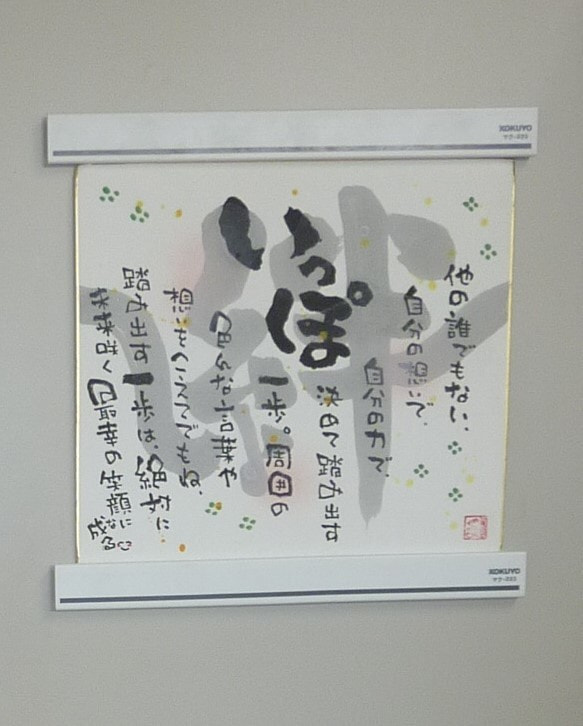 KOKUYO
絆
いっぽ
他の誰でもない、
自分の想いで、
自分の力で、
決めて踏み出す
一歩。周囲の
言葉や
踏み出す一歩は、絶対に
未来咲く最幸の笑顔に
KOKUYO